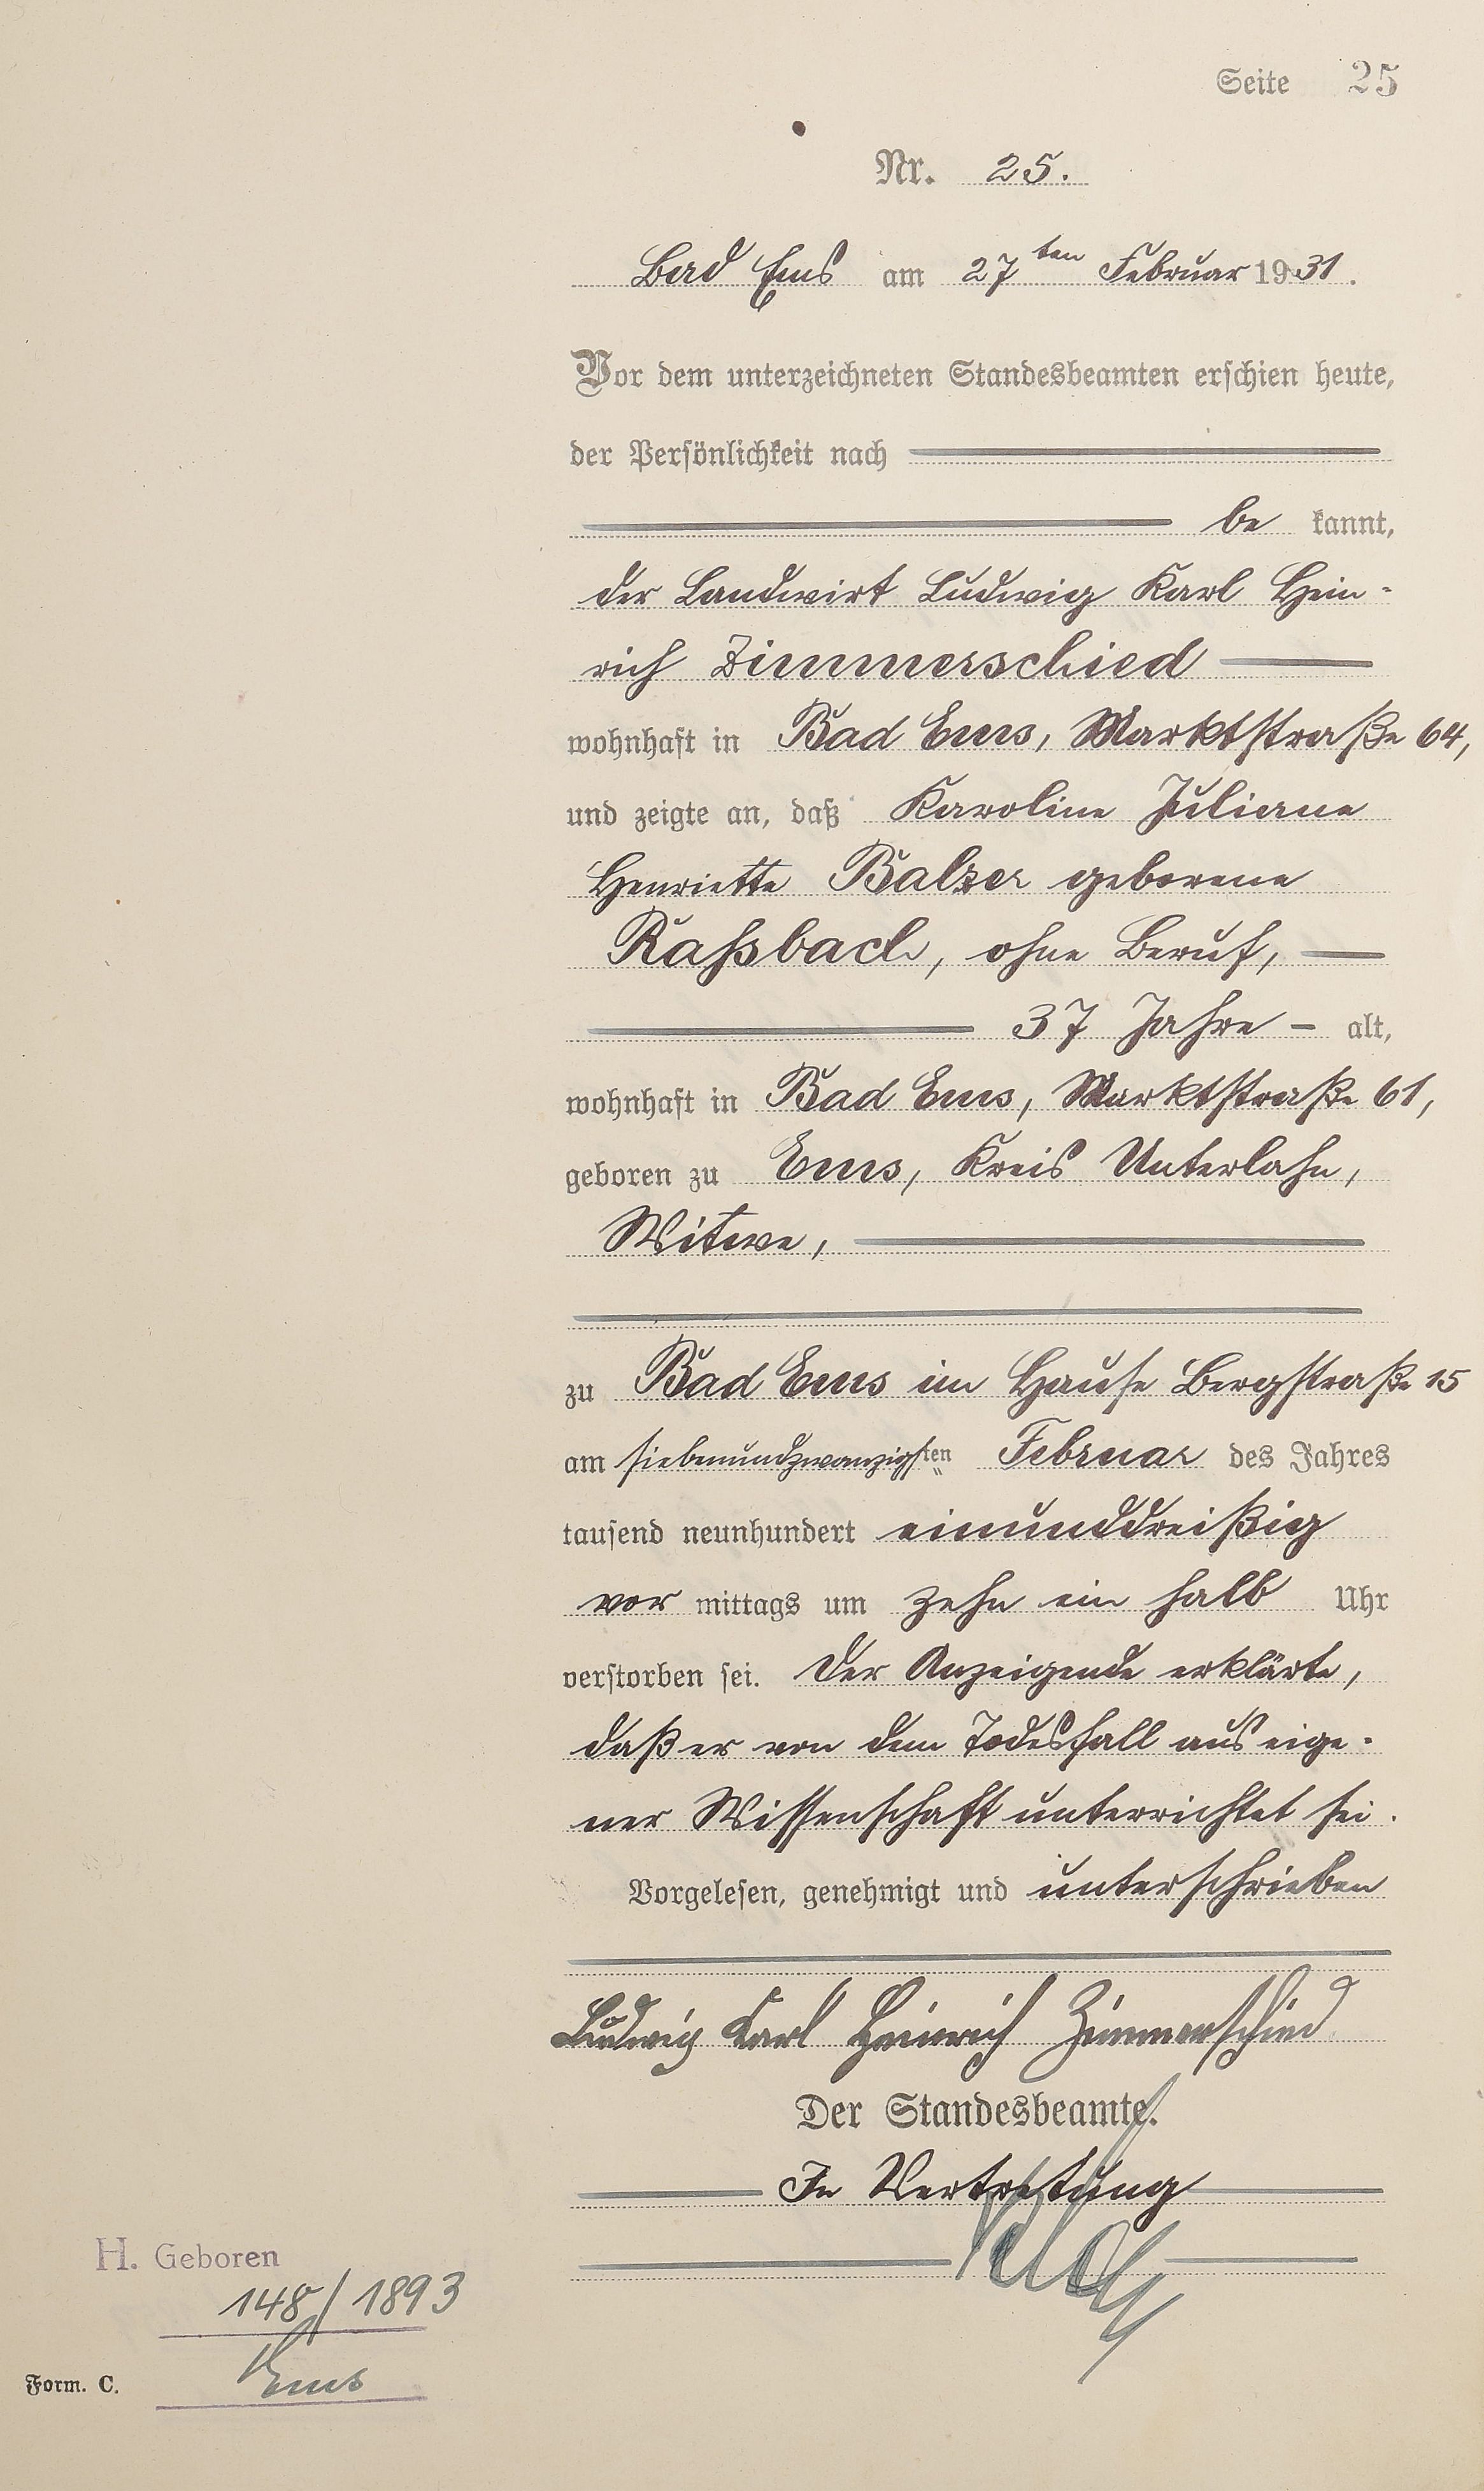 Seite 25
Nr. 25.
Bad Ems am 27ten Februar 1931.
Vor dem unterzeichneten Standesbeamten erschien heute,
der Persönlichkeit nach
be kannt,
der Landwirt Ludwig Karl Hein-
rich Zimmerschied
wohnhaft in Bad Ems, Marktstraße 64,
und zeigte an, daß Karoline Juliane
Henriette Balzer geborene
Raßbach, ohne Beruf,
37 Jahre - alt,
wohnhaft in Bad Ems, Marktstraße 61,
geboren zu Ems, Kreis Unterlahn,
Witwe,
zu Bad Ems im Hause Bergstraße 15
am siebenundzwanzigsten Februar des Jahres
tausend neunhundert einunddreißig
vor mittags um zehn ein halb Uhr
verstorben sei. Der Anzeigende erklärte,
daß er von dem Todesfall aus eige-
ner Wissenschaft unterrichtet sei.
Vorgelesen, genehmigt und unterschrieben
Ludwig Karl Heinrich Zimmerschied
Der Standesbeamte.
In Vertretung
H. Geboren
148/1893
Ems
Form. C.